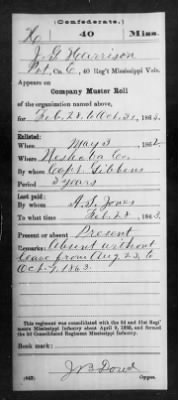 (Confederate.)
H 40 Miss.
J. G. Harrison
Pvt, Co. C, 40 Reg't Mississippi Vols.
Appears on
Company Muster Roll
of the organization named above,
for Feb. 28 to Oct. 31, 1863.
Enlisted:
When May 3, 1862.
Where Neshoba Co.
By whom Capt Gibbens
Period 3 years
Last paid:
By whom A. S. Jones
To what time Feb. 28, 1863.
Present or absent Present
Remarks: Absent without
leave from Aug 23 to
Oct 7, 1863.
This regiment was consolidated with the 3d and 31st Regi-
ments Mississippi Infantry about April 9, 1865, and formed
the 3d Consolidated Regiment Mississippi Infantry.
Book mark:
(642) J B Dowd
Copyist.